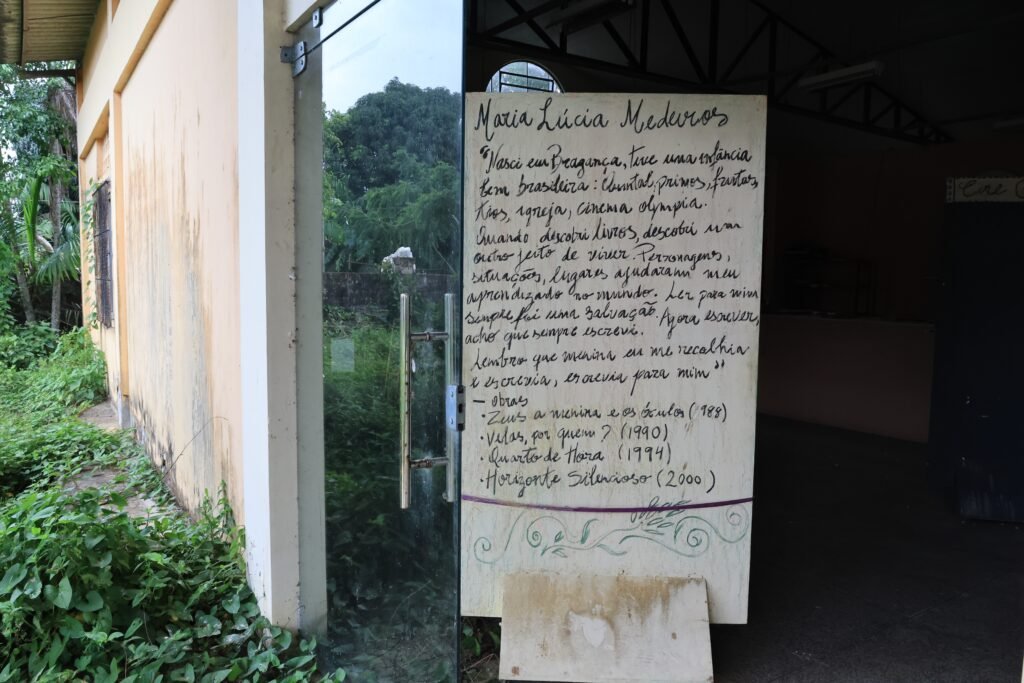 Maria Lúcia Medeiros
"Nasci em Bragança, tive uma infância
bem brasileira: Quintal, primos, frutas,
tios, igreja, cinema olympia.
Quando descobri livros, descobri um
outro jeito de viver. Personagens,
situações, lugares ajudaram meu
aprendizado no mundo. Ler para mim
sempre foi uma salvação. Agora escrever,
acho que sempre escrevi.
Lembro que menina eu me recolhia
e escrevia, escrevia para mim"
- Obras
· Zeus a menina e os óculos (1988)
· Velas, por quem? (1990)
· Quarto de Hora (1994)
· Horizonte Silencioso (2000)